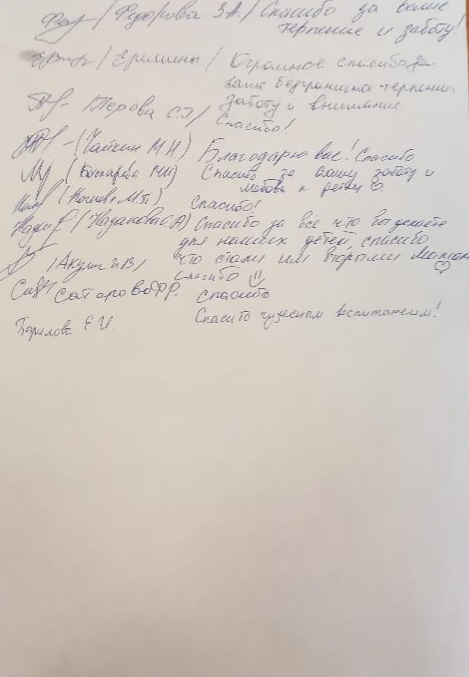 / Федорова З.А. / Спасибо за ваше
терпение и заботу!
/ Еремины / Огромное спасибо за
ваше безграничное терпение,
заботу и внимание.
Терова С.Э /
Спасибо!
(Чайкин М.Н) Благодарю вас! Спасибо
Спасибо за вашу заботу и
любовь к детям
Спасибо!
Спасибо за всё что вы делаете
для наших детей, спасибо
что стали им вторыми Мамами
/Акулич В) Спасибо
Сатарова Ф.Р. спасибо
Спасибо чудесным воспитателям!
Е.И.